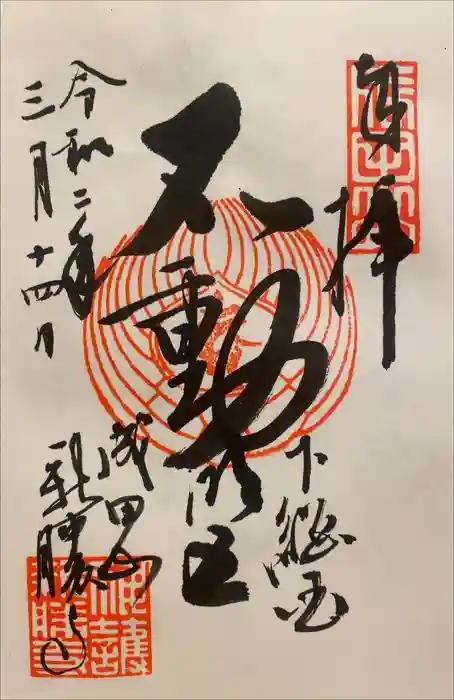 奉拝
下総国
不動明王
令和二年
三月十四日
成田山
新勝寺